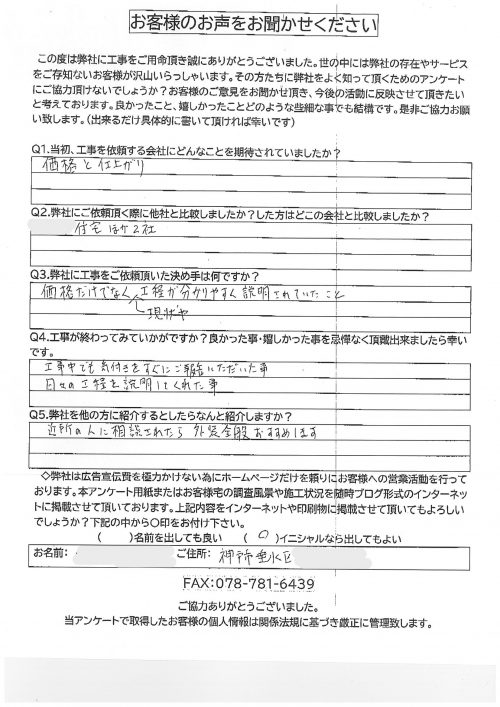 お客様のお声をお聞かせください
この度は弊社に工事をご用命頂き誠にありがとうございました。世の中には弊社の存在やサービス
をご存知ないお客様が沢山いらっしゃいます。その方たちに弊社をよく知って頂くためのアンケート
にご協力頂けないでしょうか？お客様のご意見をお聞かせ頂き、今後の活動に反映させて頂きたい
と考えております。良かったこと、嬉しかったことどのような些細な事でも結構です。是非ご協力お願
い致します。（出来るだけ具体的に書いて頂ければ幸いです）
Q1.当初、工事を依頼する会社にどんなことを期待されていましたか？
価格と仕上がり
Q2.弊社にご依頼頂く際に他社と比較しましたか？した方はどこの会社と比較しましたか？
住宅ほか2社
Q3.弊社に工事をご依頼頂いた決め手は何ですか？
価格だけでなく、工程が分かりやすく説明されていたこと
現状や
Q4.工事が終わってみていかがですか？良かった事・嬉しかった事を忌憚なく頂戴出来ましたら幸い
です。
工事中でも気付きをすぐにご報告いただいた事
日々の工程を説明してくれた事
Q5.弊社を他の方に紹介するとしたらなんと紹介しますか？
近所の人に相談されたら外装全般おすすめします
◇弊社は広告宣伝費を極力かけない為にホームページだけを頼りにお客様への営業活動を行って
おります。本アンケート用紙またはお客様宅の調査風景や施工状況を随時ブログ形式のインターネッ
トに掲載させて頂いております。上記内容をインターネットや印刷物に掲載させて頂いてもよろしい
でしょうか？下記の中から〇印をお付け下さい。
（　）名前を出しても良い　（〇）イニシャルなら出してもよい
お名前:　ご住所:　神戸市垂水区
FAX:078-781-6439
ご協力ありがとうございました。
当アンケートで取得したお客様の個人情報は関係法規に基づき厳正に管理致します。